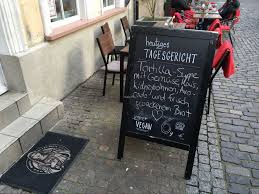 heutiges
TAGESGERICHT
Tortilla-Suppe
mit Gemüse, Mais,
Kidneybohnen, Avo-
cado und frisch
gebackenem Brot
VEGAN